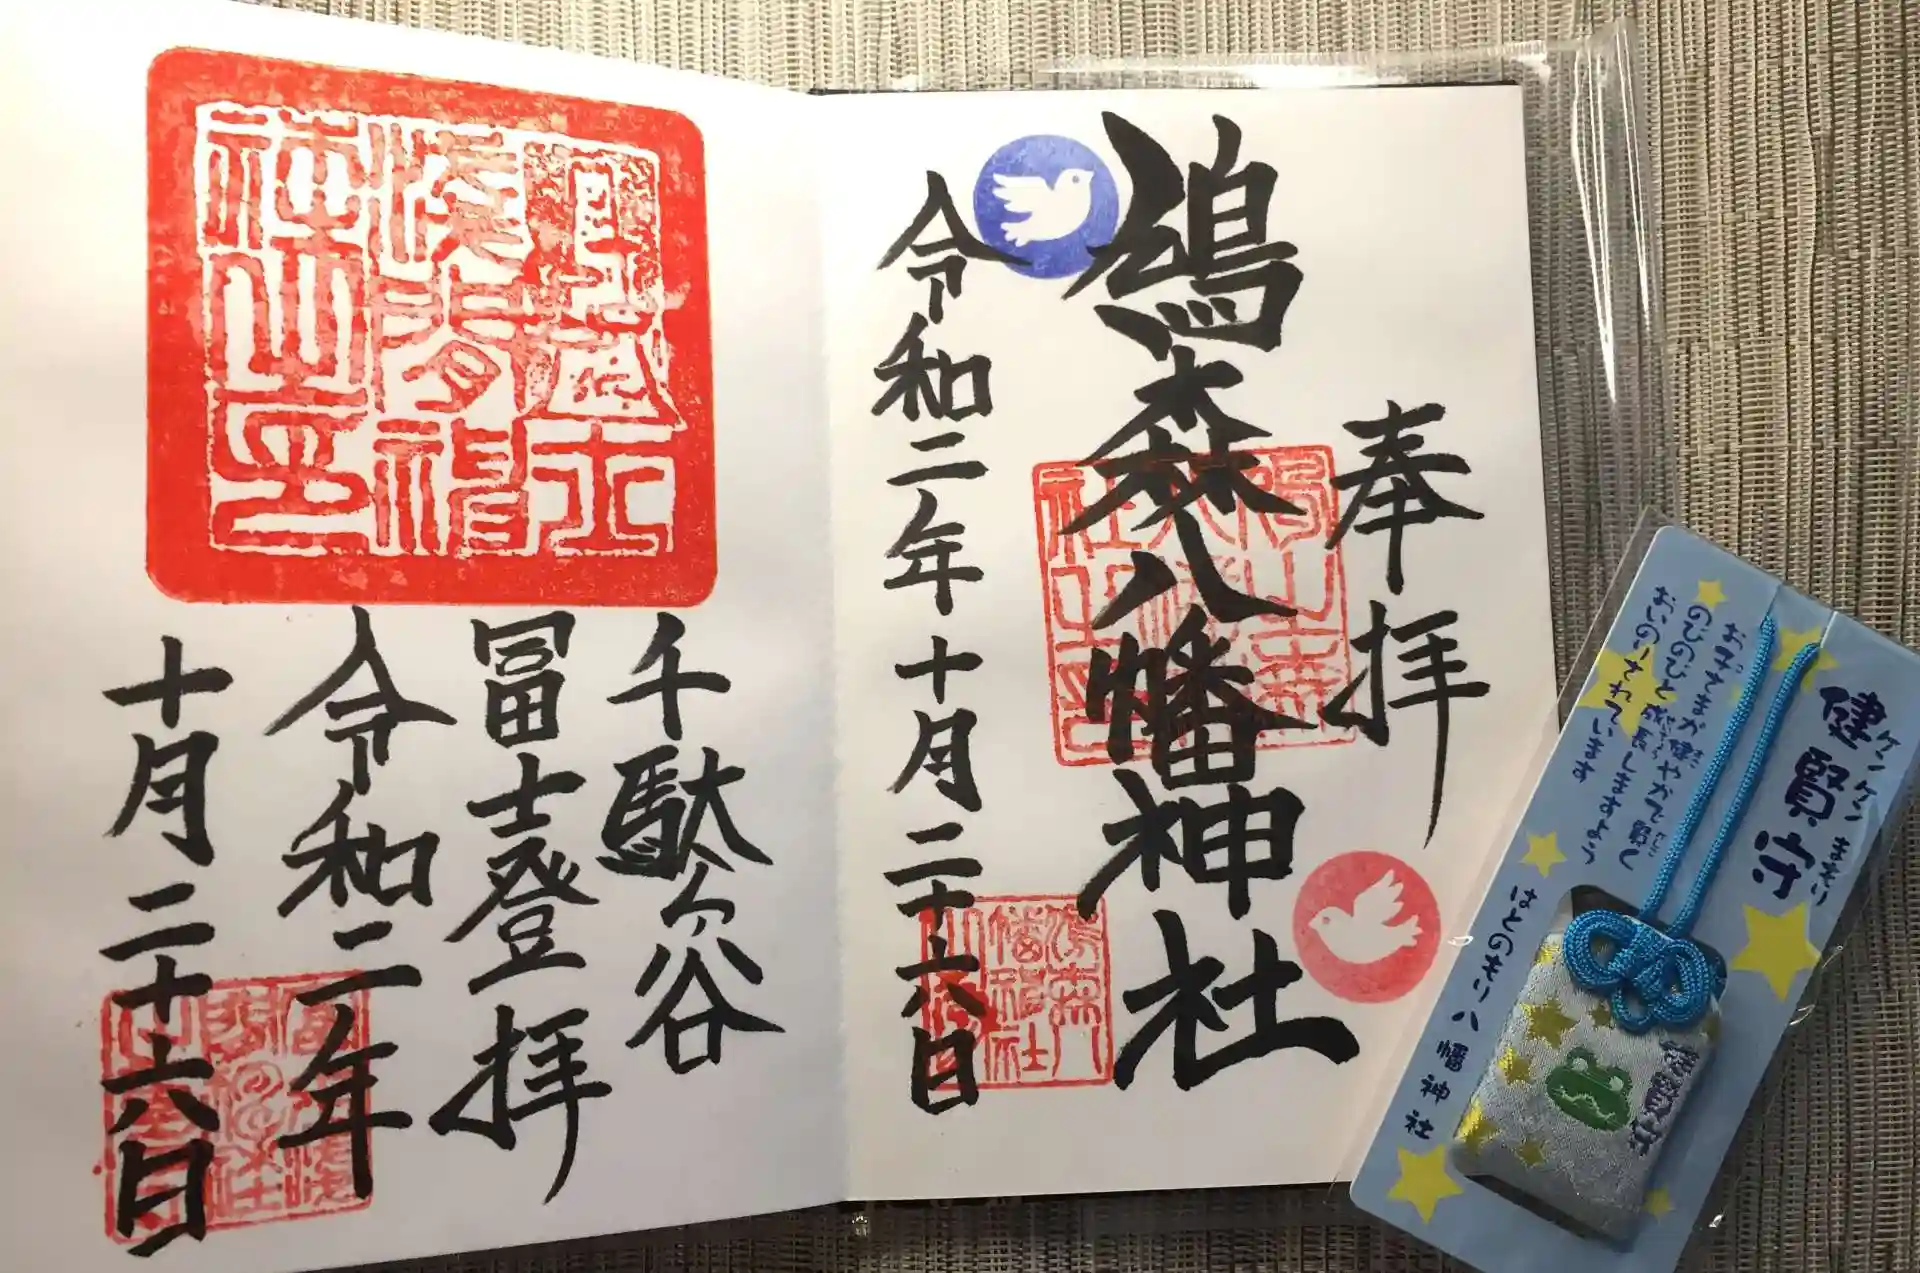 奉拝
鳩森八幡神社
令和二年十月二十六日
千駄ヶ谷
冨士登拝
令和二年
十月二十六日
ケンケンまもり
健賢守
おこさまが健やかで賢く
のびのびと成長しますよう
おいのりされています
はとのもり八幡神社
健賢守